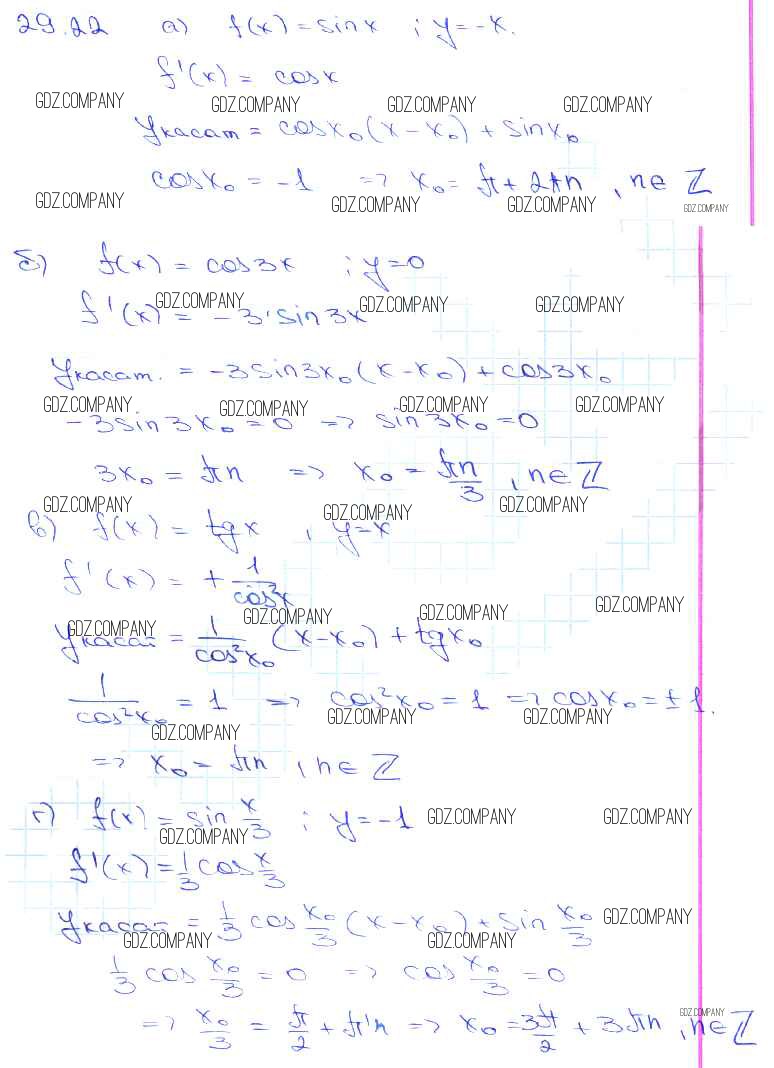 29.22 а) f(x) = sinx ; y = -x.
f'(x) = cosx
GDZ.COMPANY GDZ.COMPANY GDZ.COMPANY GDZ.COMPANY
Yкасат = cosx₀(x - x₀) + sinx₀
cosx₀ = -1 => x₀ = π + 2πn , n ∈ ℤ
GDZ.COMPANY GDZ.COMPANY GDZ.COMPANY GDZ.COMPANY
б) f(x) = cos3x ; y = 0
GDZ.COMPANY GDZ.COMPANY GDZ.COMPANY
f'(x) = -3·sin3x
Yкасат. = -3sin3x₀(x - x₀) + cos3x₀
GDZ.COMPANY GDZ.COMPANY GDZ.COMPANY GDZ.COMPANY
-3sin3x₀ = 0 => sin3x₀ = 0
3x₀ = πn => x₀ = πn/3 , n ∈ ℤ
GDZ.COMPANY GDZ.COMPANY GDZ.COMPANY
в) f(x) = tgx , y = x
f'(x) = + 1/cos²x
GDZ.COMPANY GDZ.COMPANY GDZ.COMPANY GDZ.COMPANY
Yкасат = 1/cos²x₀ (x - x₀) + tgx₀
1/cos²x₀ = 1 => cos²x₀ = 1 => cosx₀ = ±1.
GDZ.COMPANY GDZ.COMPANY GDZ.COMPANY
=> x₀ = πn , n ∈ ℤ
г) f(x) = sin x/3 ; y = -1 GDZ.COMPANY GDZ.COMPANY
GDZ.COMPANY
f'(x) = 1/3 cos x/3
Yкасат = 1/3 cos x₀/3 (x - x₀) + sin x₀/3 GDZ.COMPANY
GDZ.COMPANY GDZ.COMPANY
1/3 cos x₀/3 = 0 => cos x₀/3 = 0
GDZ.COMPANY
=> x₀/3 = π/2 + πn => x₀ = 3π/2 + 3πn , n ∈ ℤ